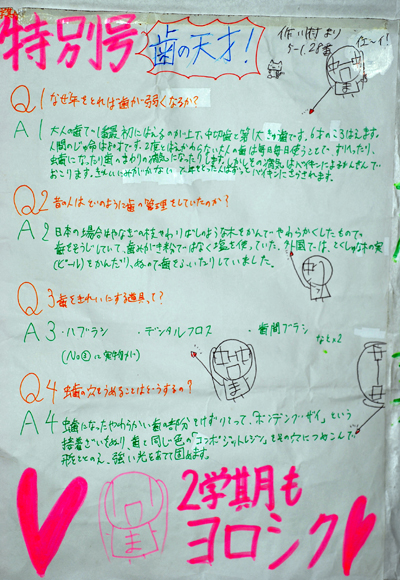 特別号
歯の天才!
佐川村より
5-1.28番
Q1 なぜ年をとれば歯が弱くなるか?
A1 大人の歯で1番最初にはえるのが上下中切歯と第1大きゅう歯です。6才のころはえます。
人間のじゅ命はおよそです。2度とはえかわらない大人の歯は毎日毎日使うことで、すりへったり、
虫歯になったり歯のまわりの病気になったりします。しかしその病気はバイキンによるかんせんで
おこります。
Q2 昔の人はどのように歯の管理をしていたのか?
A2 日本の場合はやなぎの枝をわりばしのような木をかんでやわらかくしたもので
歯をそうじしていて、歯みがき粉ではなく塩を使っていた。外国では、とくしゅな木の実
(ビール)をかんだり、ぬので歯をふいたりしていました。
Q3 歯をきれいにする道具、は?
A3 ・ハブラシ ・デンタルフロス ・歯間ブラシ
などx2
Q4 虫歯の穴をうめることはどうするの?
A4 虫歯になったやわらかい歯の部分をけずりとって、「ボンデング・ザイ」という
接着ざいをぬり、歯と同じ色の「コンポジットレジン」をその穴につめこんで
形をととのえ、強い光をあてて固めます。
ま
2学期も
ヨロシク